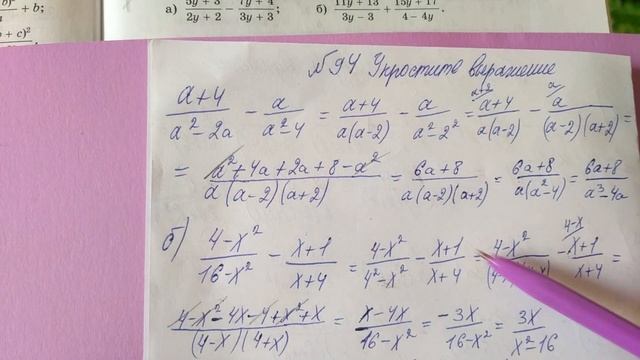 b)²
+ b;
+ c)²
а) (5y + 3)/(2y + 2) − (7y + 4)/(3y + 3);   б) (11y + 13)/(3y − 3) + (15y + 17)/(4 − 4y).
№94 Упростите выражение
(a+4)/(a²−2a) − a/(a²−4) = (a+4)/(a(a−2)) − a/(a²−2²) = (a+2)(a+4)/(a(a−2)) − a·a/((a−2)(a+2)) =
= (a²+4a+2a+8−a²)/(a(a−2)(a+2)) = (6a+8)/(a(a−2)(a+2)) = (6a+8)/(a(a²−4)) = (6a+8)/(a³−4a)
б) (4−x²)/(16−x²) − (x+1)/(x+4) = (4−x²)/(4²−x²) − (x+1)/(x+4) = (4−x²)/(4− − 4−x (x+1)/(x+4) =
(4−x²−4x−4+x²+x)/((4−x)(4+x)) = (x−4x)/(16−x²) = (−3x)/(16−x²) = 3x/(x²−16)